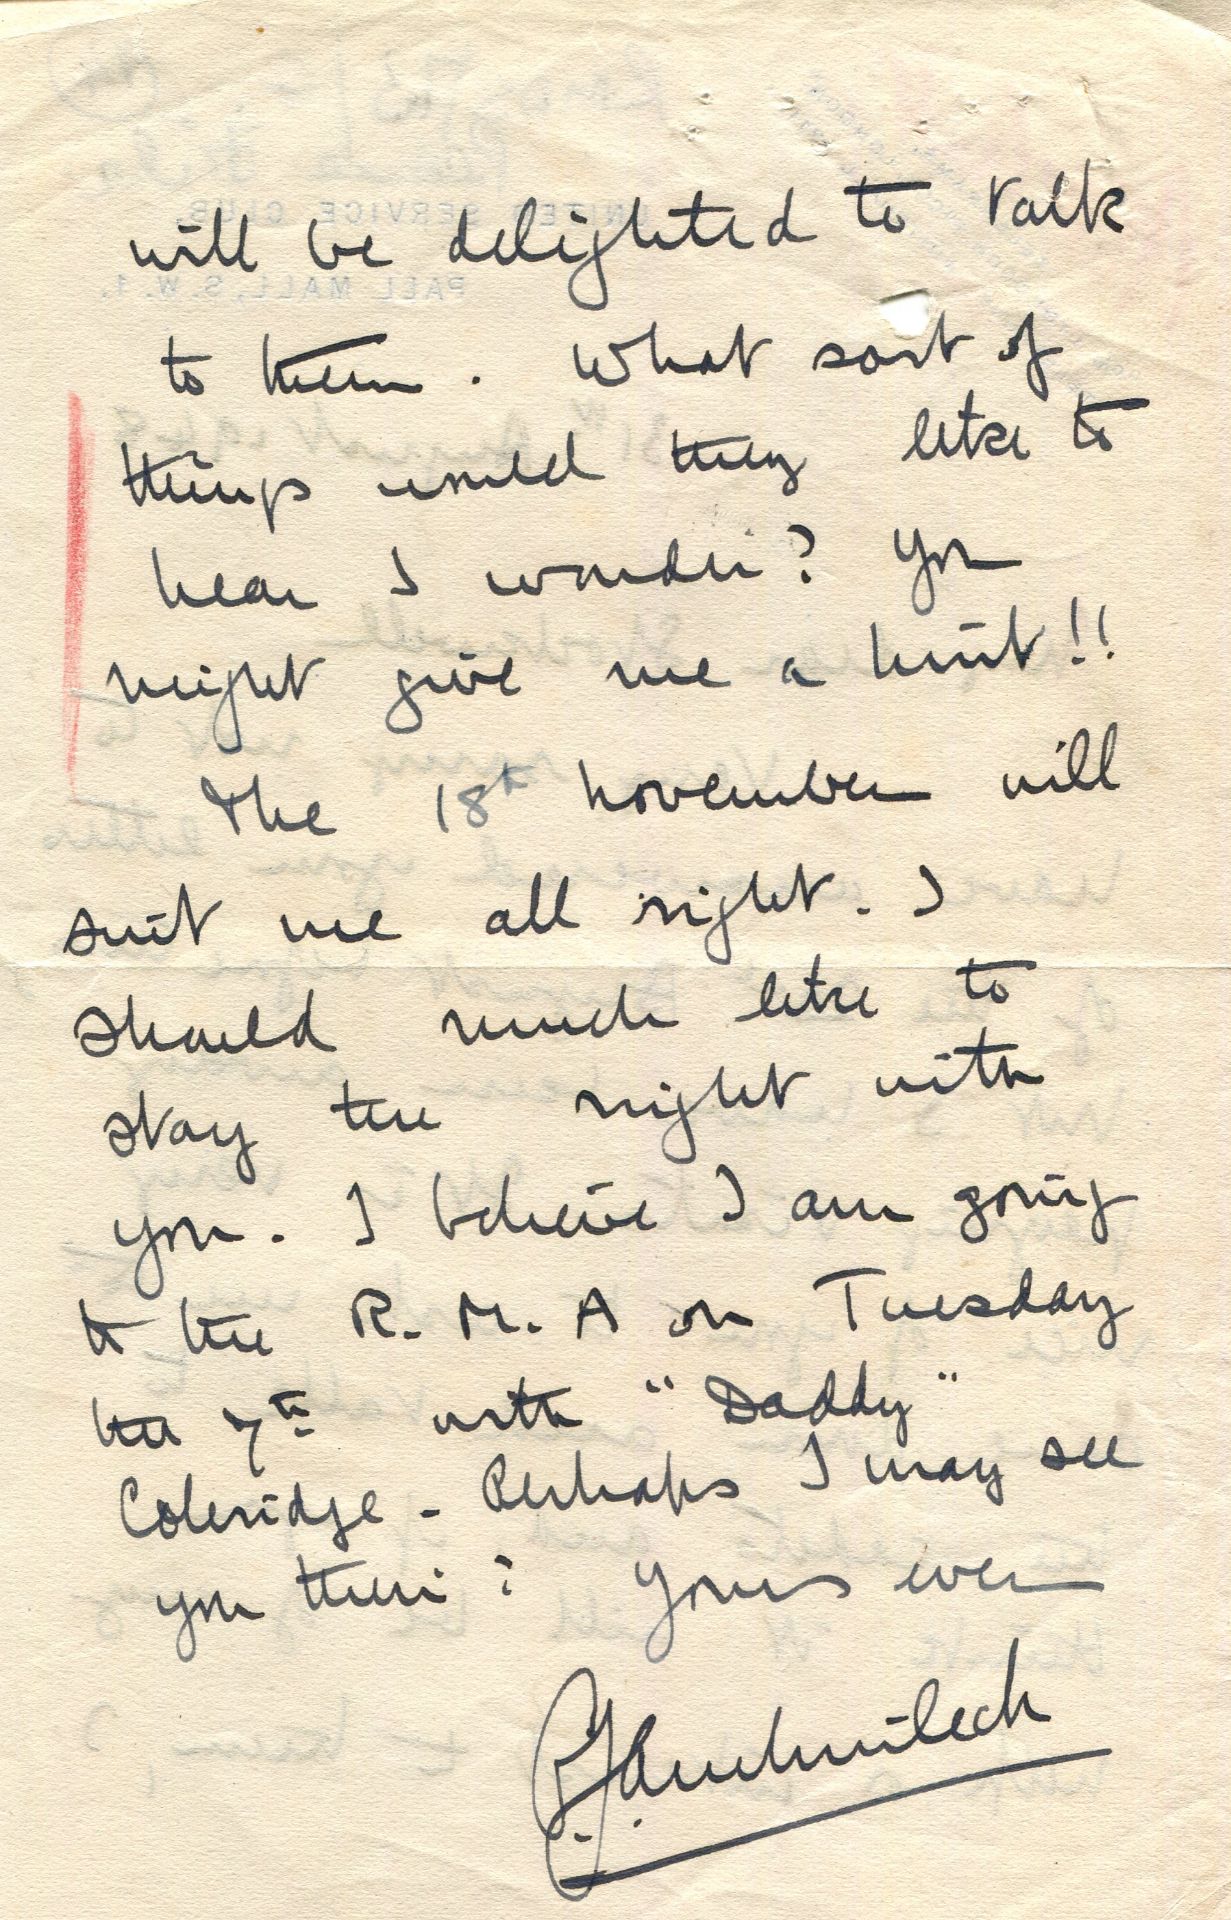 will be delighted to talk
to them. What sort of
things would they like to
hear I wonder? You
might give me a hint!!
The 18th November will
suit me all right. I
should much like to
stay the night with
you. I believe I am going
to the R.M.A on Tuesday
the 7th with "Daddy"
Coleridge - Perhaps I may see
you there? Yours ever
C.J. Auchinleck
UNITED SERVICE CLUB,
PALL MALL, S.W.1.